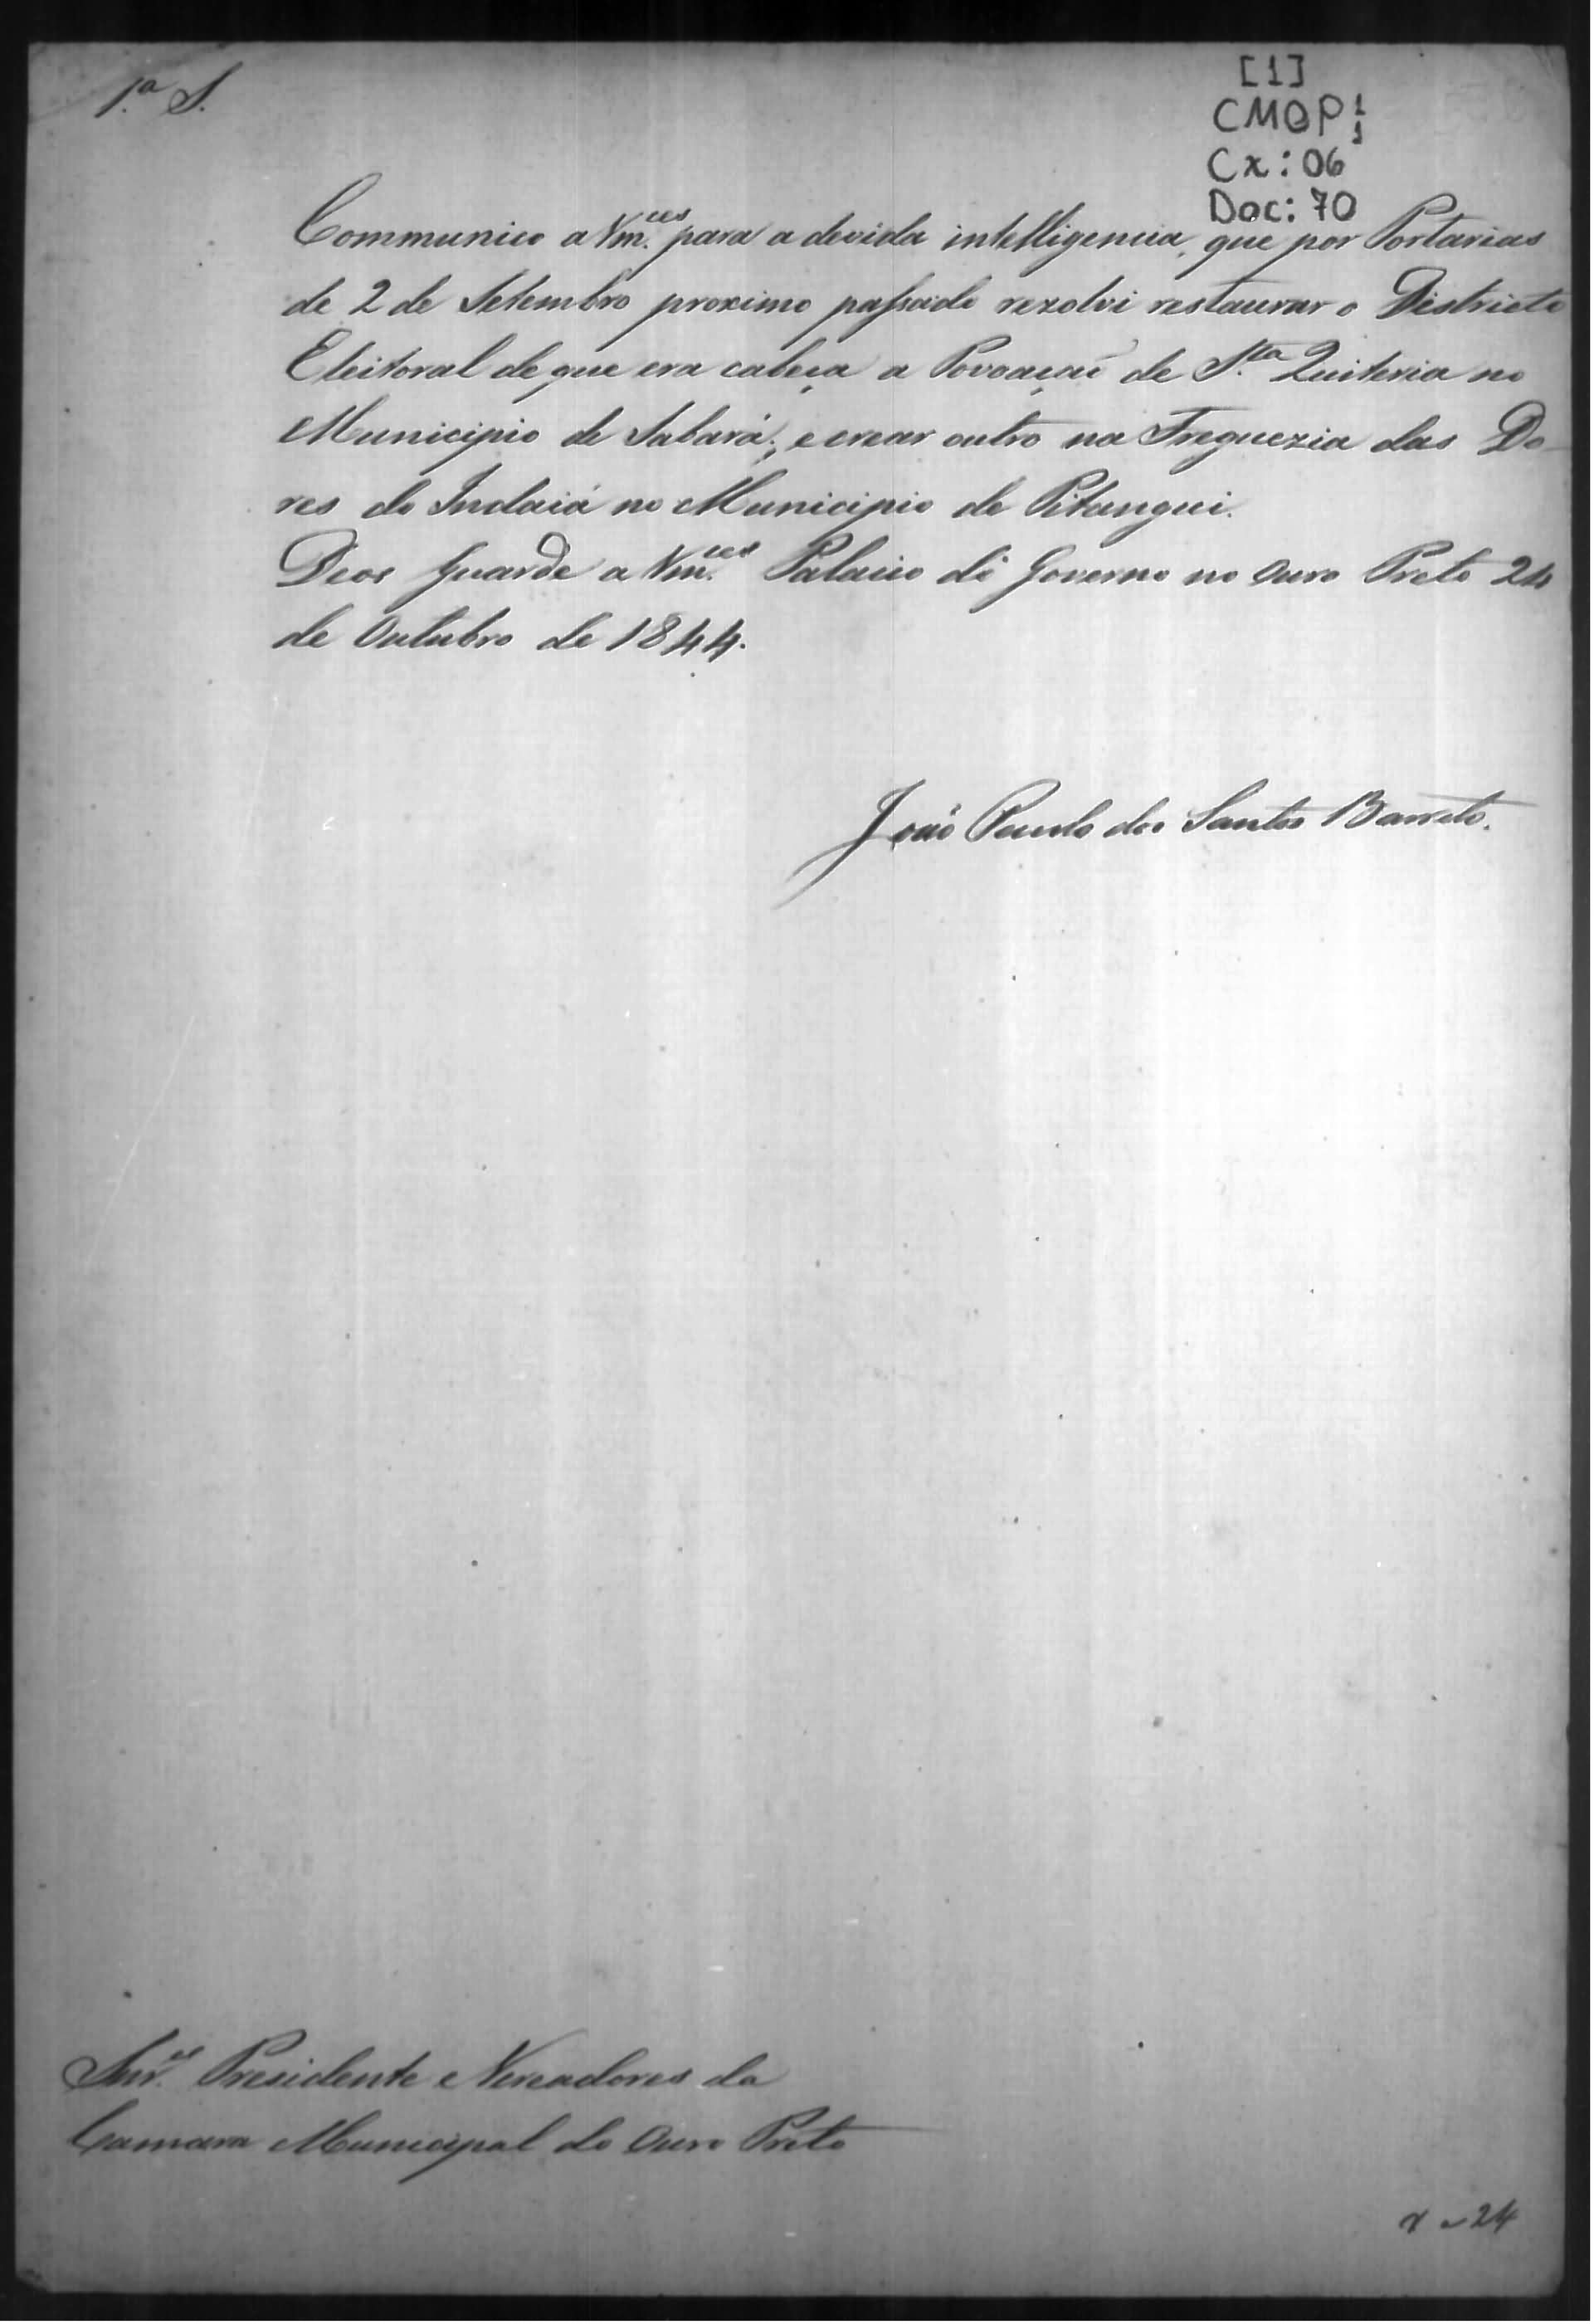 1.ª S.
[1]
CMOP 1/1
Cx: 06
Doc: 70
Communico a Vm.ces para a devida intelligencia, que por Portarias
de 2 de Setembro proximo passado rezolvi restaurar o Districto
Eleitoral de que era cabeça a Povoaçaõ de S.ta Quiteria no
Municipio de Sabará; e crear outro na Freguezia das Do-
res do Indaiá no Municipio de Pitangui.
Deos Guarde a Vm.ces Palacio do Governo no Ouro Preto 24
de Outubro de 1844.
João Paulo dos Santos Barreto.
Snr.es Presidente e Vereadores da
Camara Municipal do Ouro Preto
24